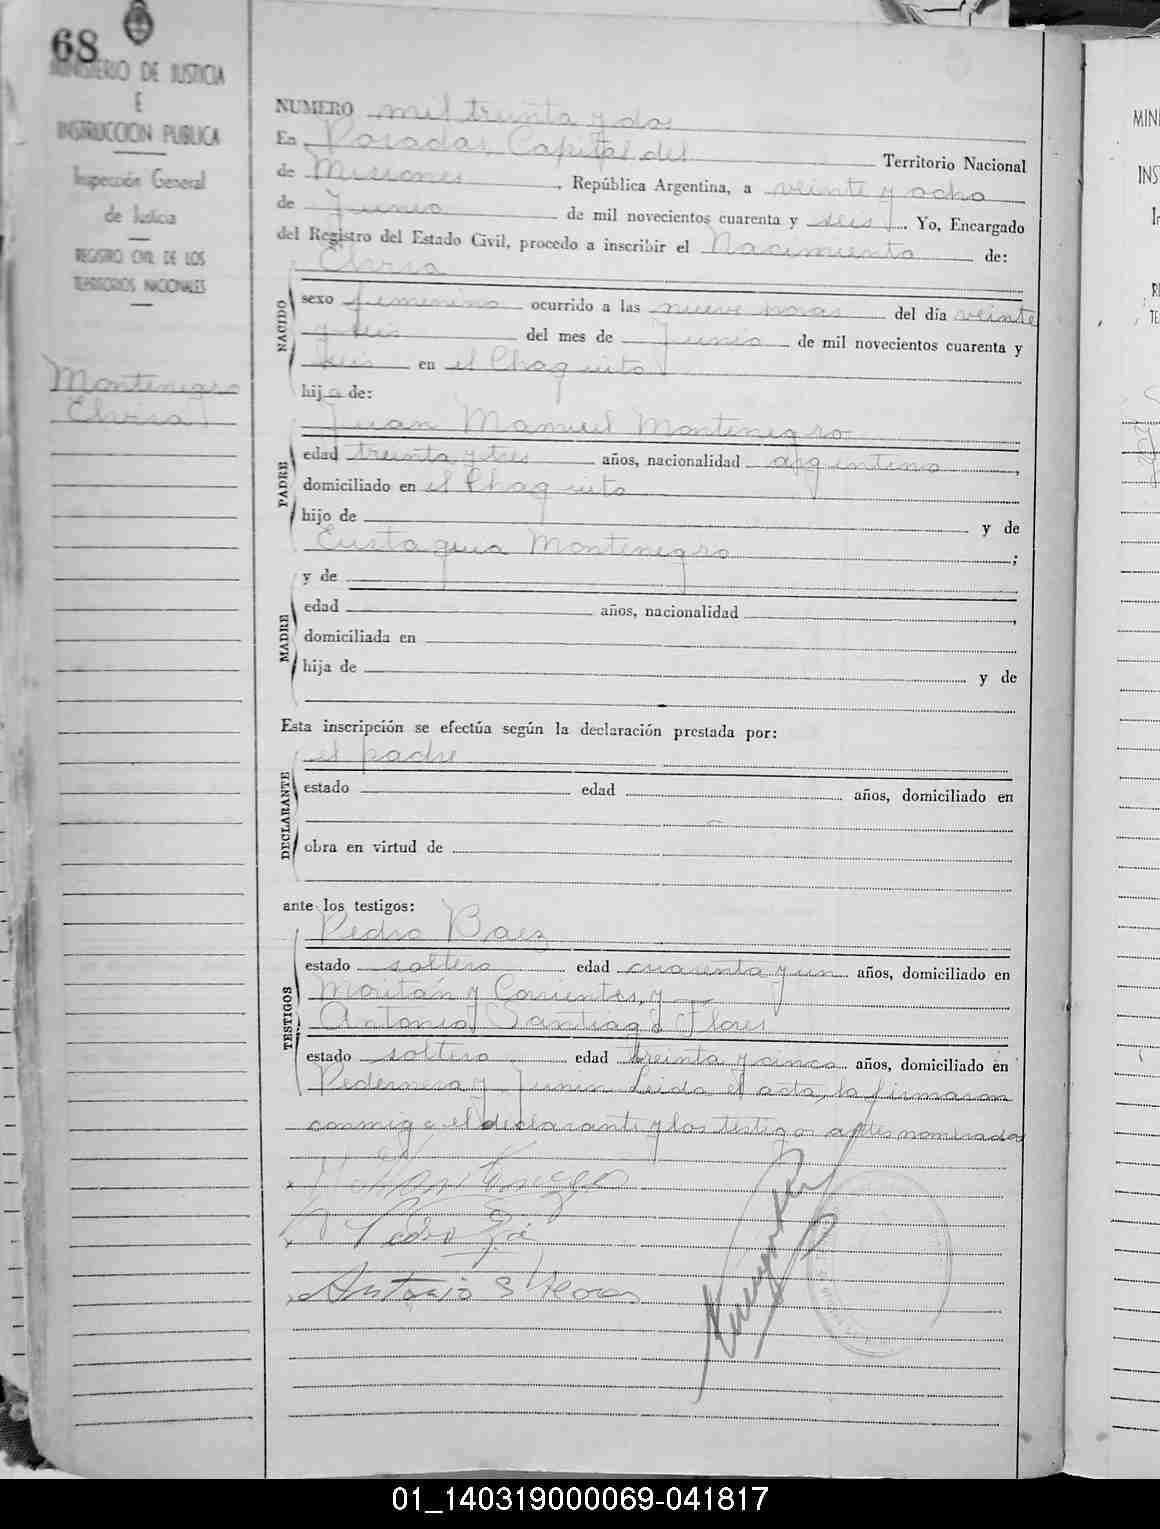 68
MINISTERIO DE JUSTICIA
E
INSTRUCCION PUBLICA
Inspección General
de Justicia
REGISTRO CIVIL DE LOS
TERRITORIOS NACIONALES
Montenegro
Elvira
NUMERO mil treinta y dos
En Posadas, Capital del Territorio Nacional
de Misiones, República Argentina, a veinte y ocho
de Junio de mil novecientos cuarenta y seis. Yo, Encargado
del Registro del Estado Civil, procedo a inscribir el Nacimiento de:
Elvira
NACIDO
sexo femenino ocurrido a las nueve horas del día veinte
y seis del mes de Junio de mil novecientos cuarenta y
seis en el Chaquito
hija de:
Juan Manuel Montenegro
PADRE
edad treinta y tres años, nacionalidad argentino,
domiciliado en el Chaquito
hijo de y de
Eustaquia Montenegro;
y de
MADRE
edad años, nacionalidad,
domiciliada en
hija de y de
Esta inscripción se efectúa según la declaración prestada por:
el padre
DECLARANTE
estado edad años, domiciliado en
obra en virtud de
ante los testigos:
Pedro Baez
TESTIGOS
estado soltero edad cuarenta y un años, domiciliado en
y Corrientes, y
Antonio Santiago Flores
estado soltero edad treinta y cinco años, domiciliado en
Pedernera y Junin. Leida el acta, la firmaron
conmigo el declarante y los testigos antes nombrados
Antonio S Flores
MINI
INS
I
RE
TE
01_140319000069-041817